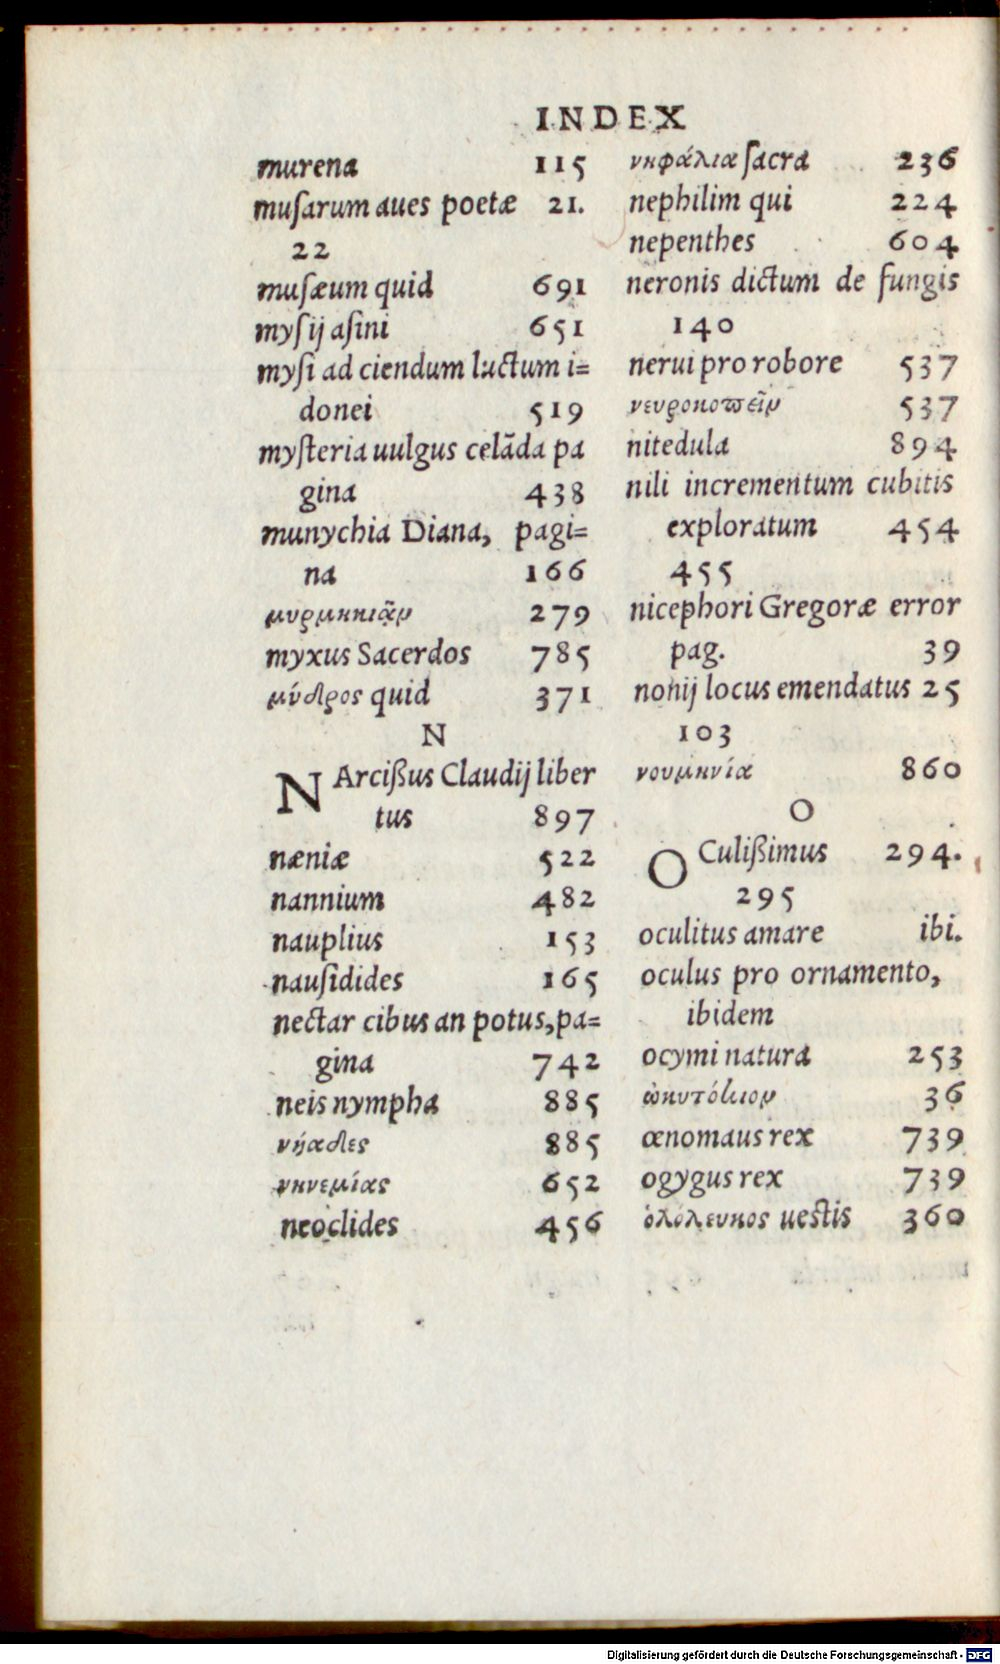 INDEX
murena 115
muſarum aues poetæ 21.
22
muſæum quid 691
myſij aſini 651
myſi ad ciendum luctum i=
donei 519
myſteria uulgus celãda pa
gina 438
munychia Diana, pagi=
na 166
μυρμηκιᾷν 279
myxus Sacerdos 785
μύδρος quid 371
N
NArcißus Claudij liber
tus 897
næniæ 522
nannium 482
nauplius 153
nauſidides 165
nectar cibus an potus, pa=
gina 742
neis nympha 885
νήαδες 885
νηνεμίας 652
neoclides 456
νηφάλια ſacra 236
nephilim qui 224
nepenthes 604
neronis dictum de fungis
140
nerui pro robore 537
νευροκοπεῖν 537
nitedula 894
nili incrementum cubitis
exploratum 454
455
nicephori Gregoræ error
pag. 39
nonij locus emendatus 25
103
νουμηνία 860
O
OCulißimus 294.
295
oculitus amare ibi.
oculus pro ornamento,
ibidem
ocymi natura 253
ὠκυτόκιον 36
œnomaus rex 739
ogygus rex 739
ὁλόλευκος ueſtis 360
Digitalisierung gefördert durch die Deutsche Forschungsgemeinschaft - DFG